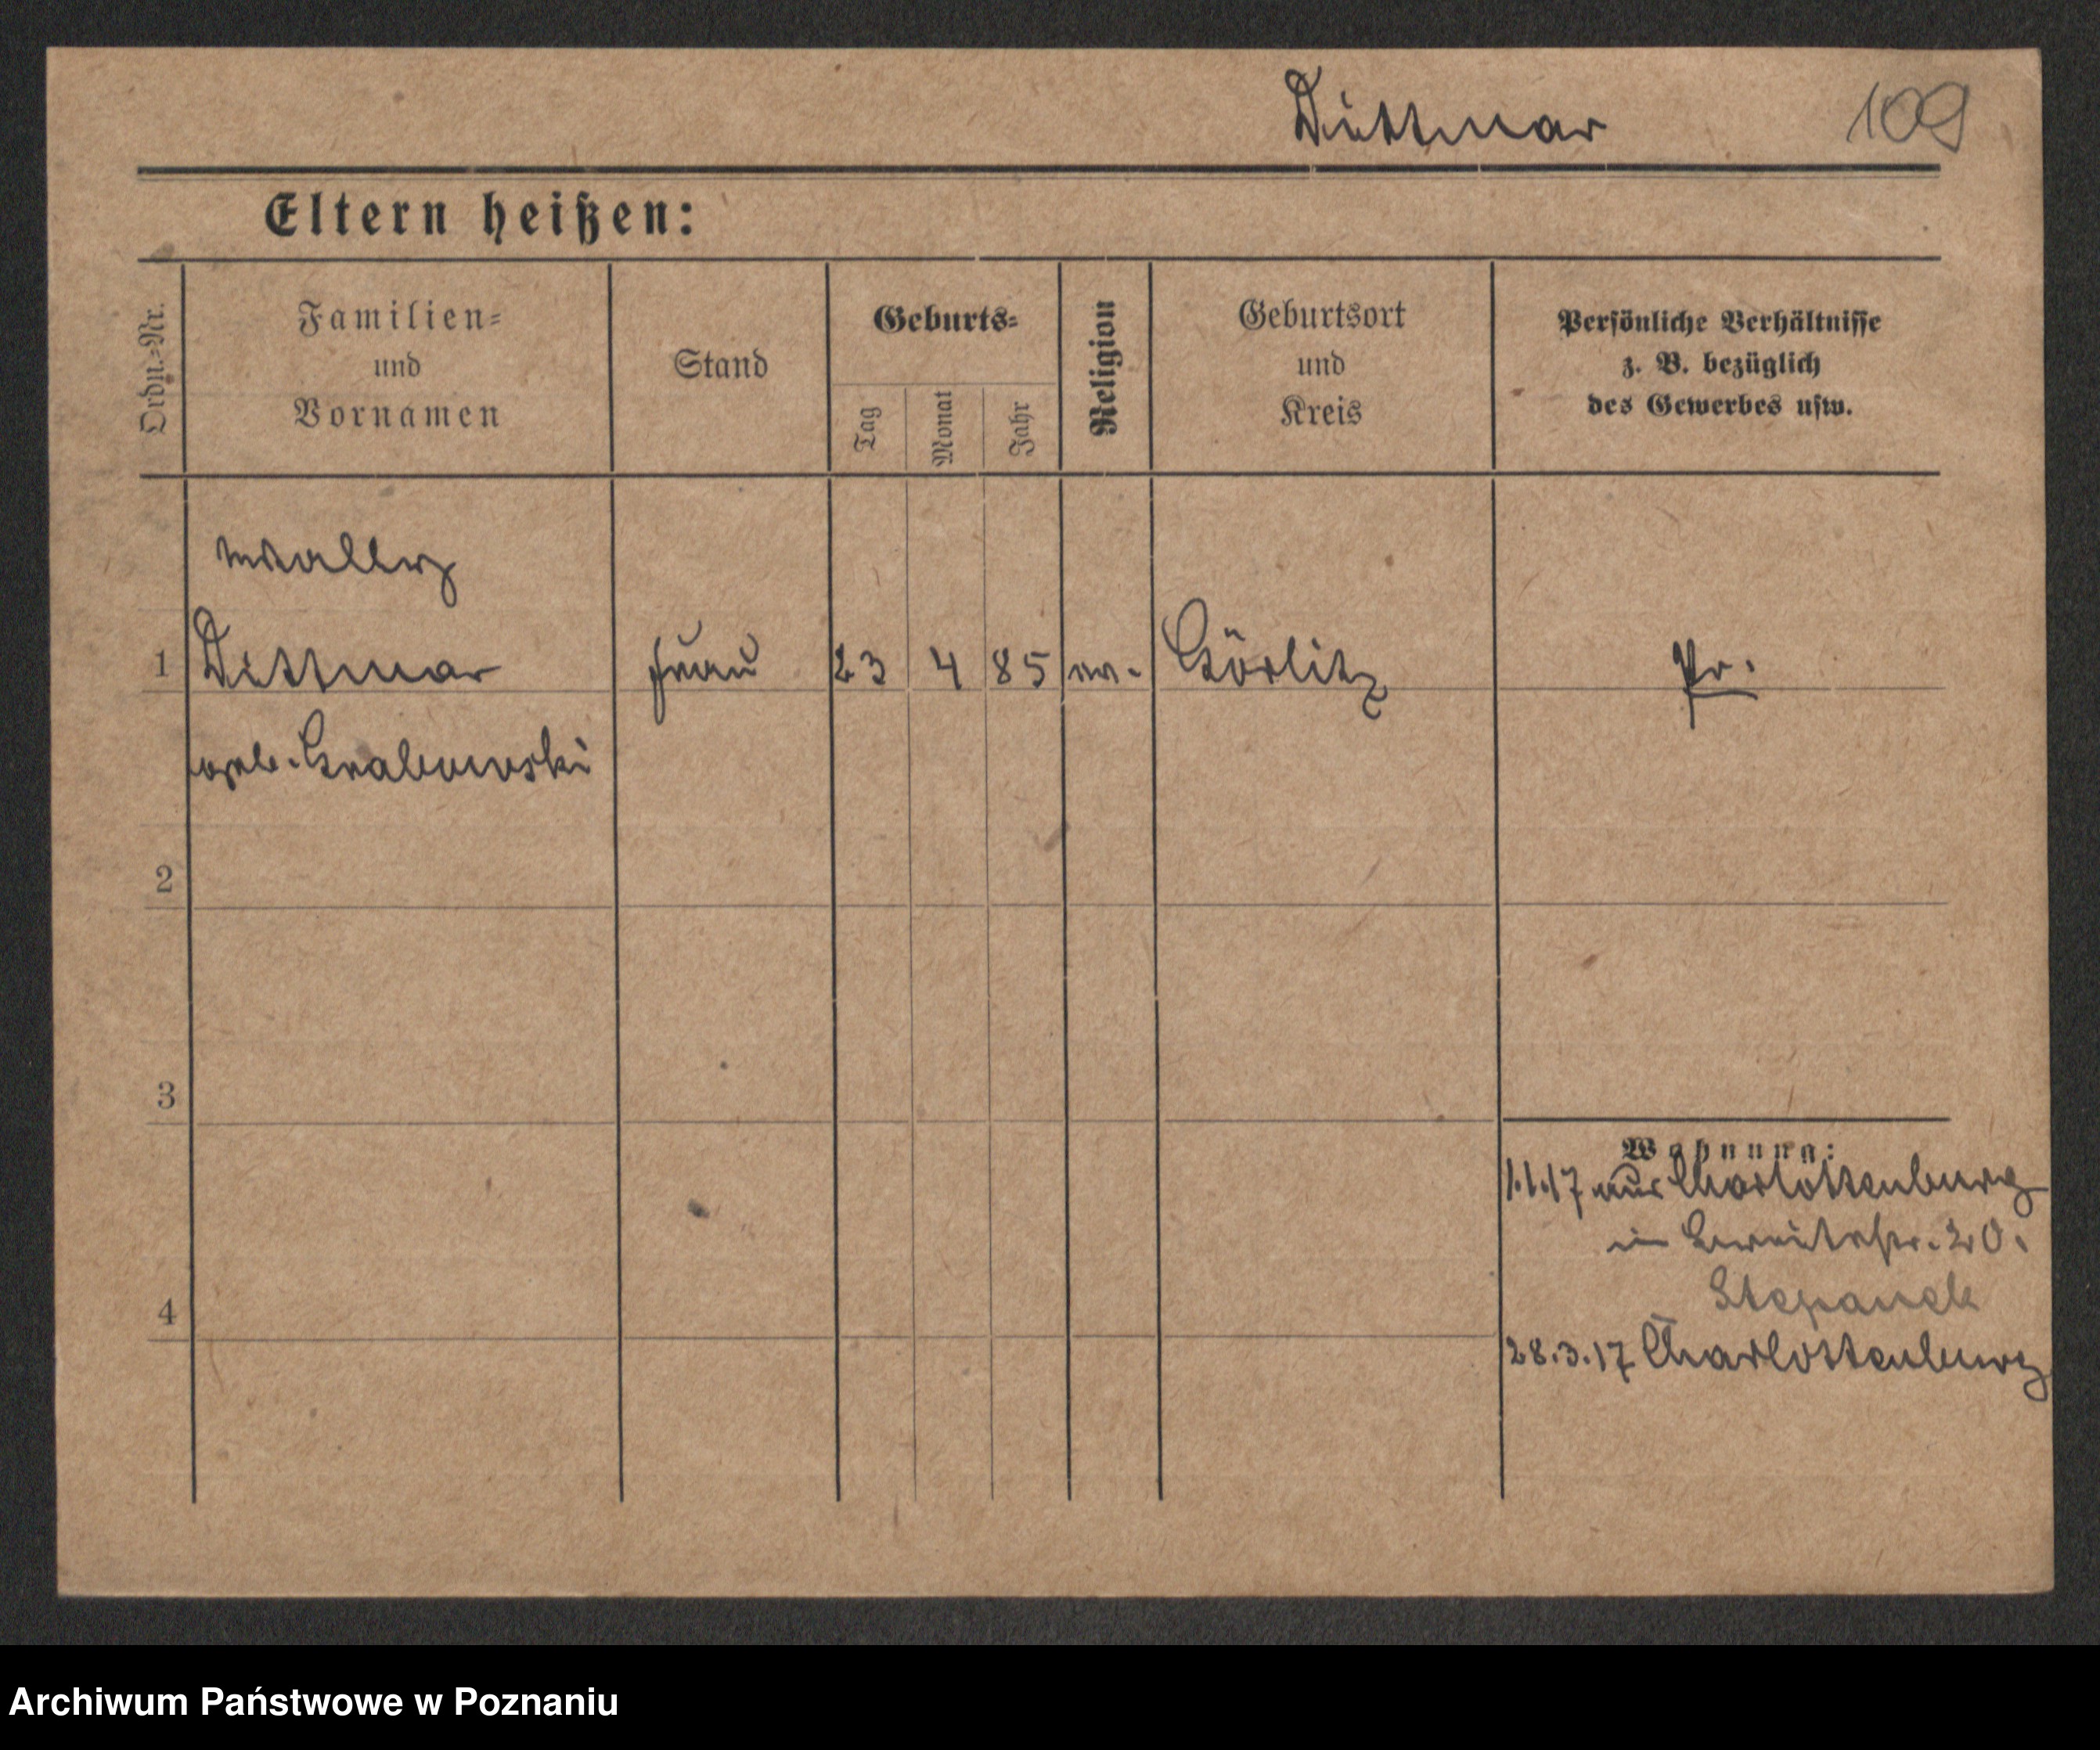 Dittmar 109
Eltern heißen:
Ordn.-Nr.
Familien-
und
Vornamen
Stand
Geburts-
Tag
Monat
Jahr
Religion
Geburtsort
und
Kreis
Persönliche Verhältnisse
z. B. bezüglich
des Gewerbes usw.
Wally
1 Dittmar Frau 23 4 85 ev. Görlitz Pr.
geb. Grabowski
2
3
Wohnung:
1.1.17 aus Charlottenburg
in 20.
Stepanek
4
28.3.17 Charlottenburg
Archiwum Państwowe w Poznaniu